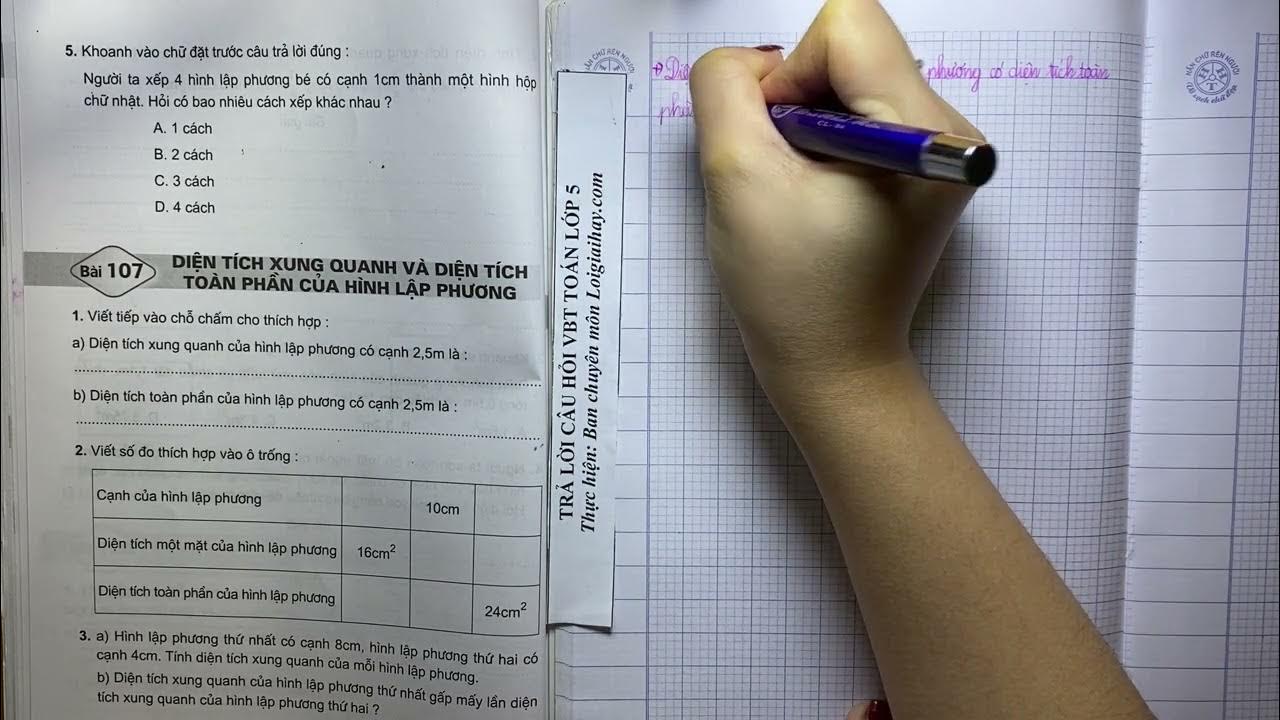 5. Khoanh vào chữ đặt trước câu trả lời đúng :
Người ta xếp 4 hình lập phương bé có cạnh 1cm thành một hình hộp
chữ nhật. Hỏi có bao nhiêu cách xếp khác nhau ?
A. 1 cách
B. 2 cách
C. 3 cách
D. 4 cách
Bài 107
DIỆN TÍCH XUNG QUANH VÀ DIỆN TÍCH
TOÀN PHẦN CỦA HÌNH LẬP PHƯƠNG
1. Viết tiếp vào chỗ chấm cho thích hợp :
a) Diện tích xung quanh của hình lập phương có cạnh 2,5m là :
b) Diện tích toàn phần của hình lập phương có cạnh 2,5m là :
2. Viết số đo thích hợp vào ô trống :
Cạnh của hình lập phương 10cm
Diện tích một mặt của hình lập phương 16cm²
Diện tích toàn phần của hình lập phương 24cm²
3. a) Hình lập phương thứ nhất có cạnh 8cm, hình lập phương thứ hai có
cạnh 4cm. Tính diện tích xung quanh của mỗi hình lập phương.
b) Diện tích xung quanh của hình lập phương thứ nhất gấp mấy lần diện
tích xung quanh của hình lập phương thứ hai ?
TRẢ LỜI CÂU HỎI VBT TOÁN LỚP 5
Thực hiện: Ban chuyên môn Loigiaihay.com
phương có diện tích toàn
NÉT CHỮ RÈN NGƯỜI